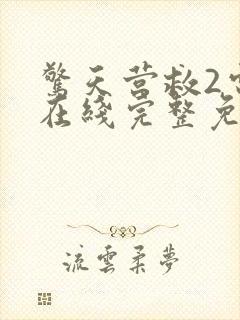 驚天营救2
在綫完整免
流雲柔夢